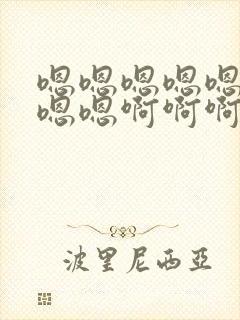 嗯嗯嗯嗯嗯
嗯嗯啊啊啊
波里尼西亞